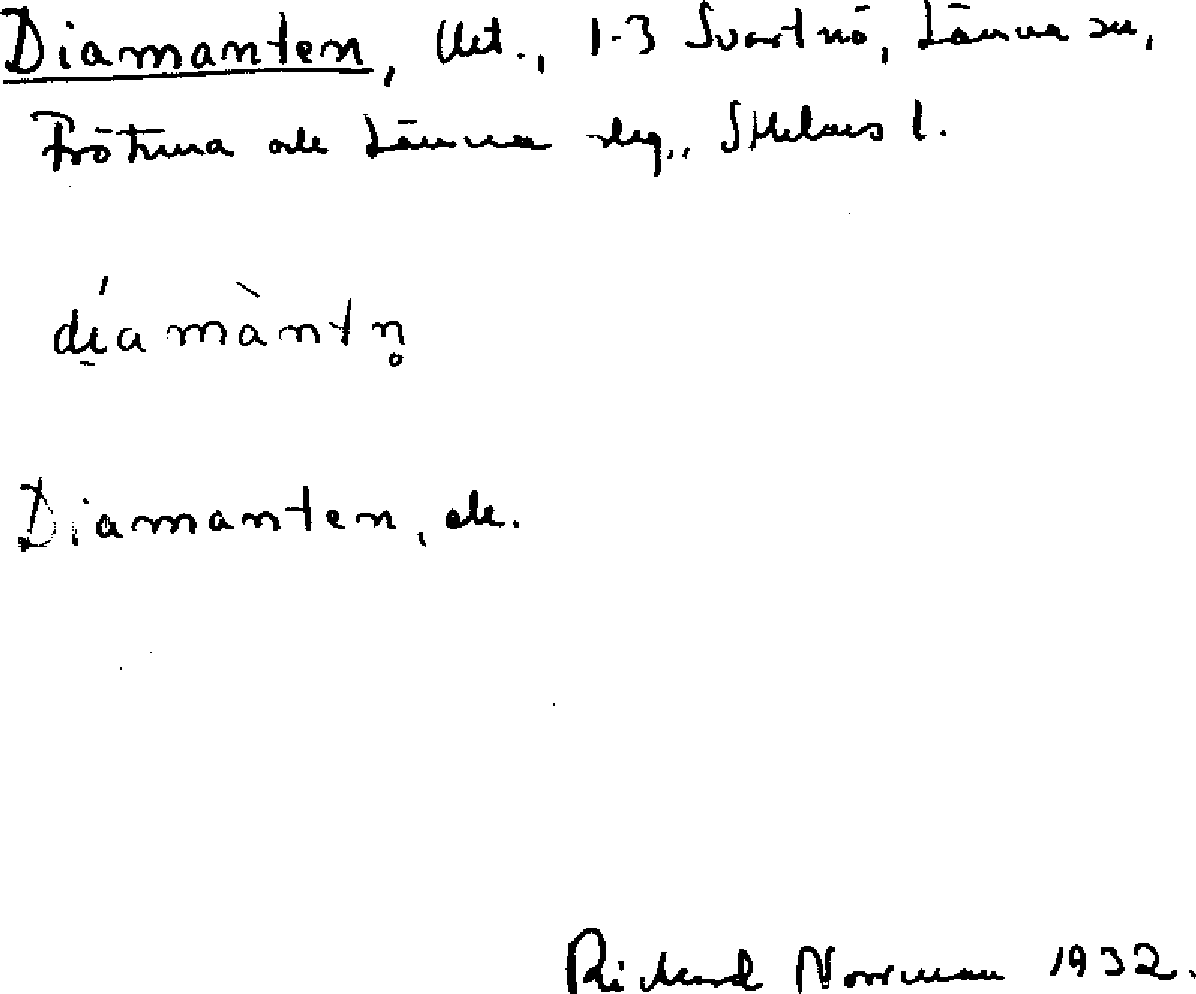 Diamanten, Urt., 1-3 Svartnö, Länna sn,
Frötuna och Länna slg., Sthlms l.
díamàntn̥
Diamanten, ek.
Rickard Norrman 1932.